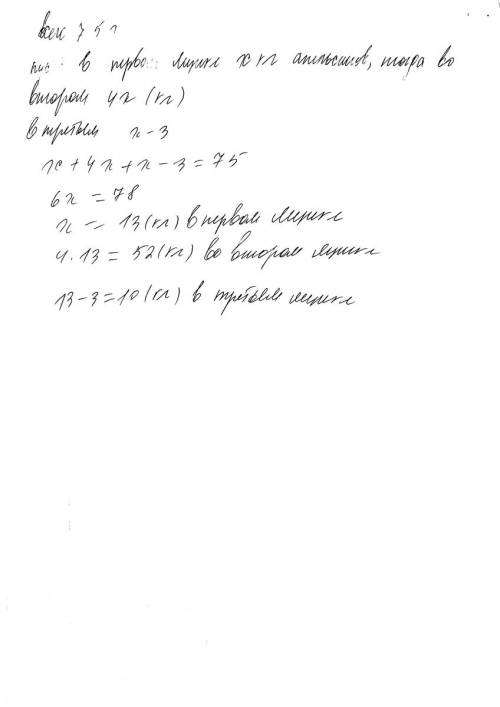 всех 75
в перво мешке x кг апельсинов, тогда во
втором 4x (кг)
в третьем x-3
x+4x+x-3=75
6x=78
x = 13(кг) в первом мешке
4·13=52(кг) во втором мешке
13-3=10(кг) в третьем мешке